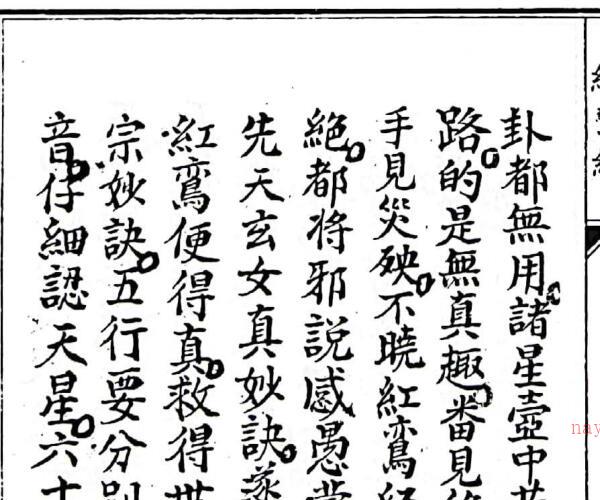 卦都無用諸星壺中
路的是無真趣畨見
手見災殃不曉紅鸞
絕都將邪說感愚
先天玄女真妙訣
紅鸞便得真救得世
宗妙訣五行要分別
音仔細認天星六十
nay